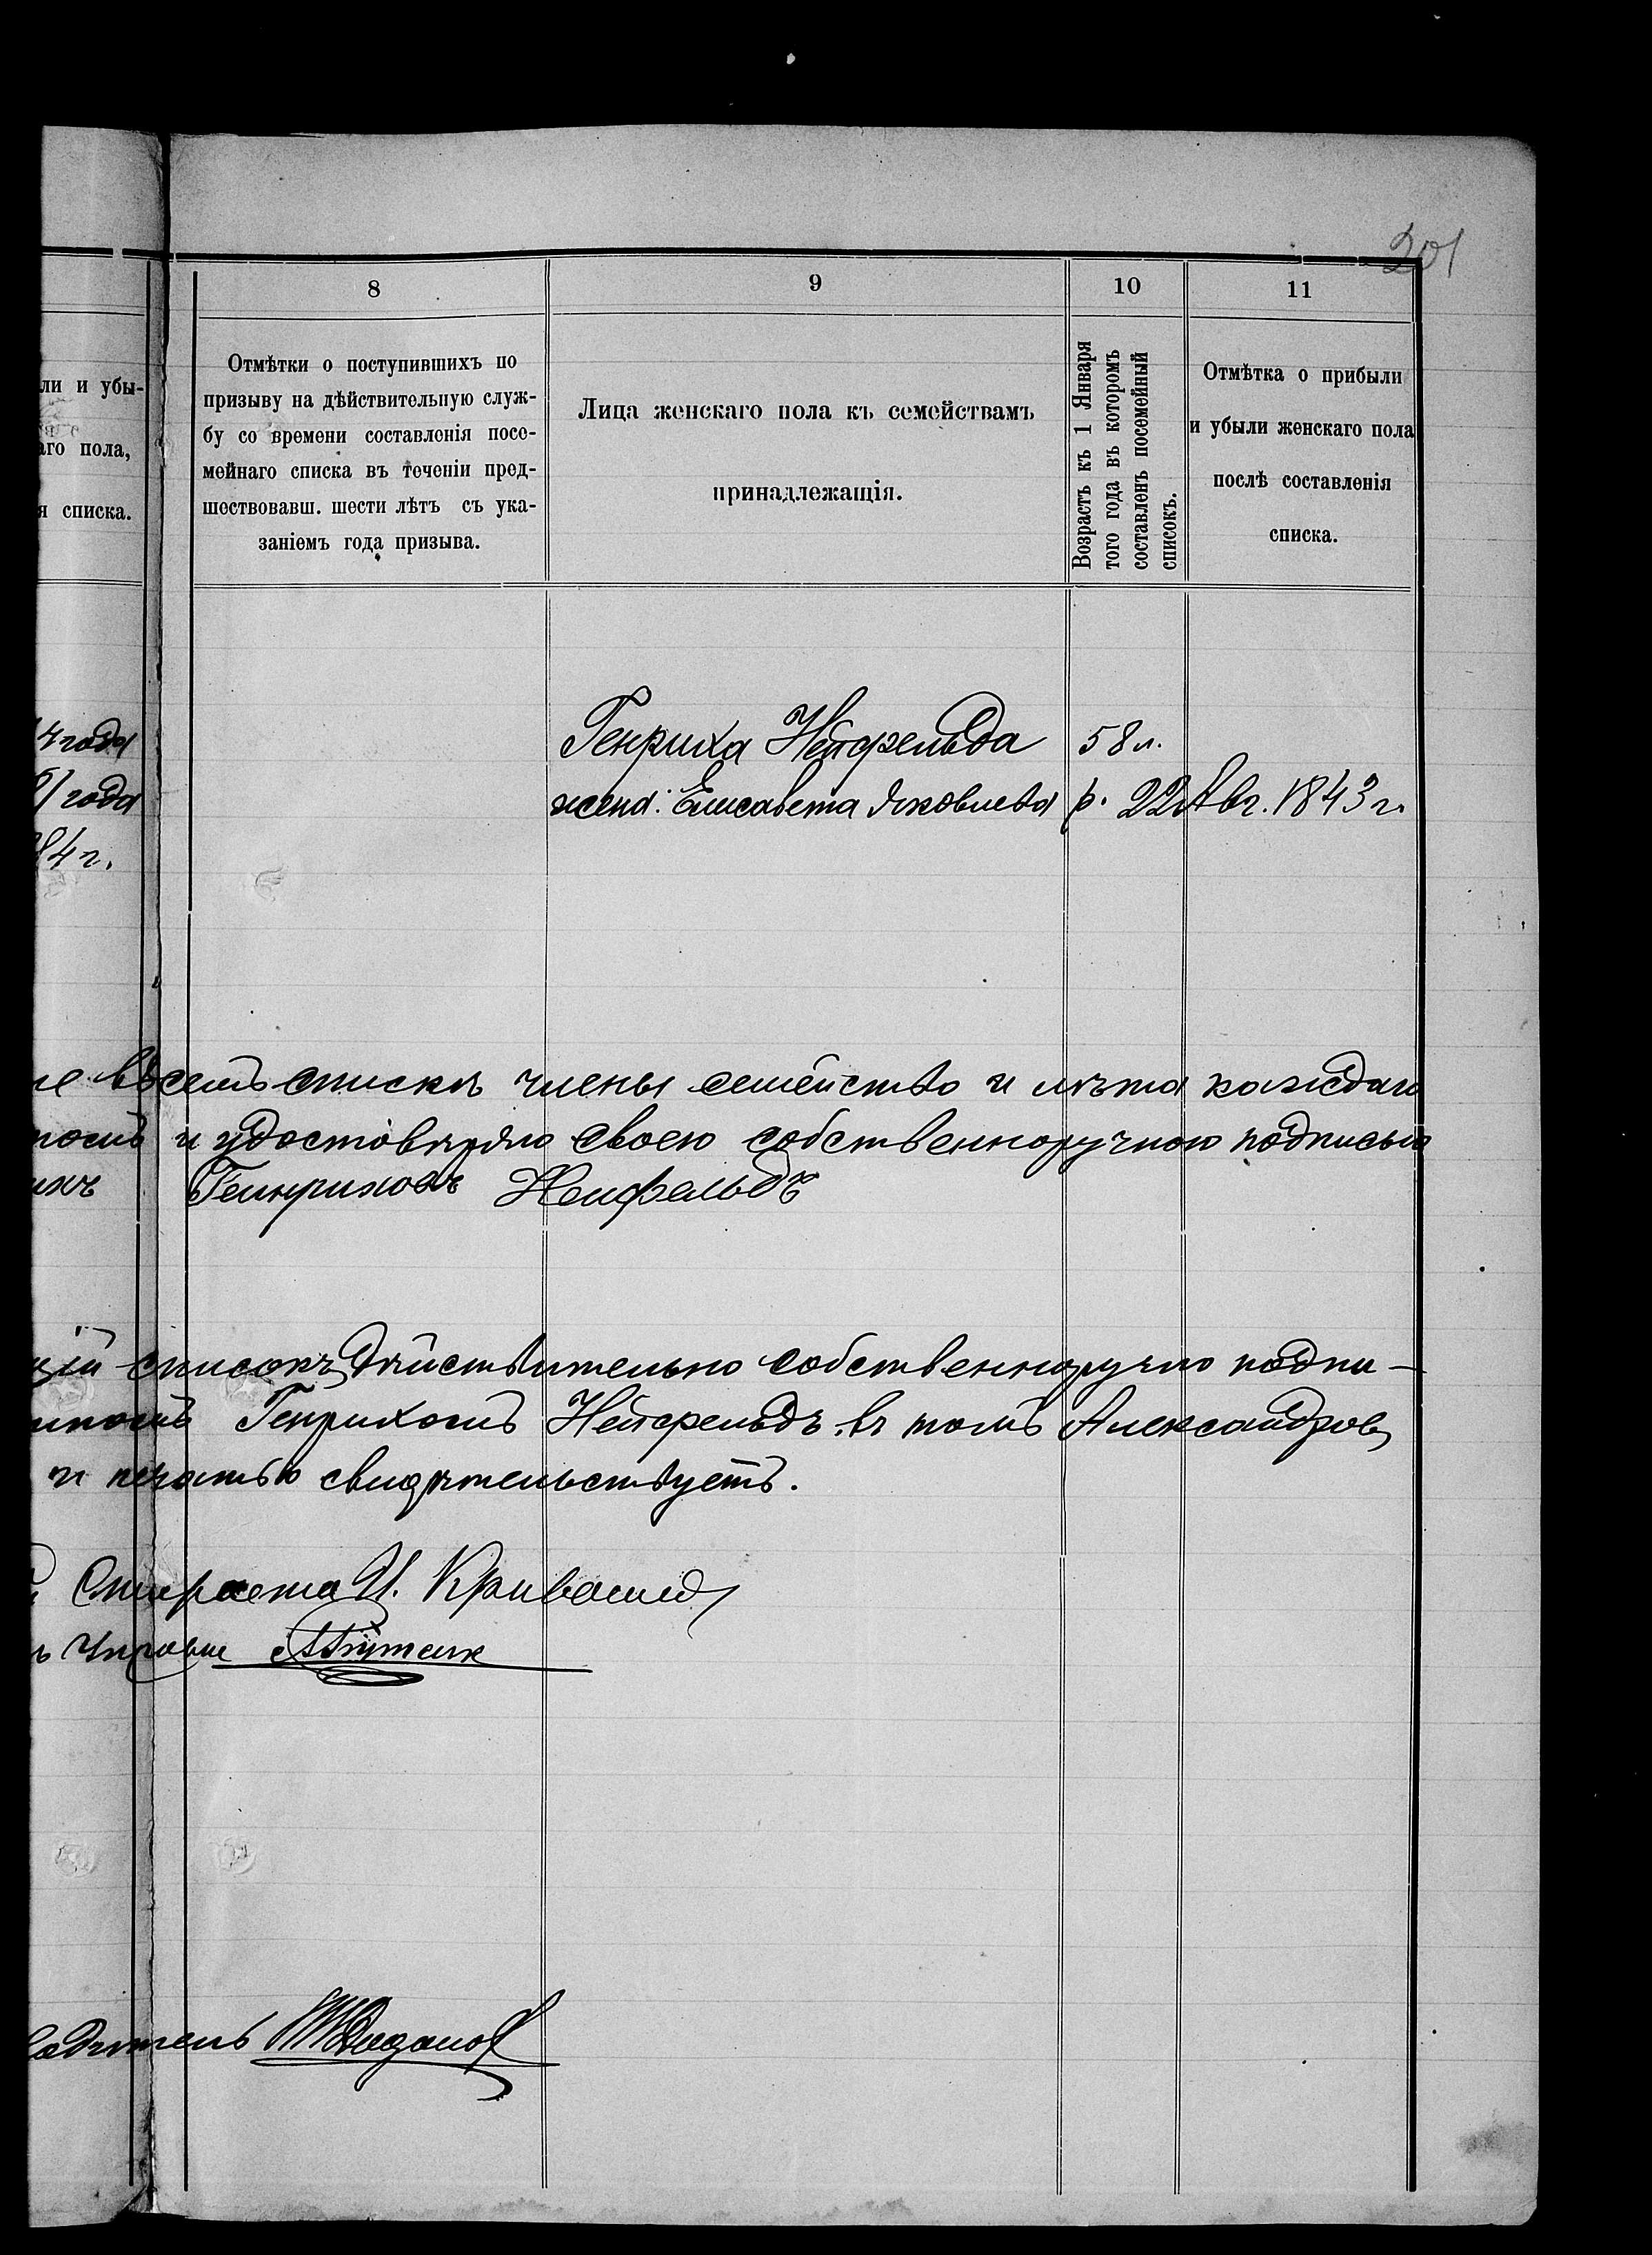 201
8
9
10
11
ли и убы-
аго пола,
я списка.
Отмѣтки о поступившихъ по
призыву на дѣйствительную служ-
бу со времени составленія посе-
мейнаго списка въ теченіи пред-
шествовавш. шести лѣтъ съ ука-
заніемъ года призыва.
Лица женскаго пола къ семействамъ
принадлежащія.
Возрастъ къ 1 Января
того года въ которомъ
составленъ посемейный
списокъ.
Отмѣтка о прибыли
и убыли женскаго пола
послѣ составленія
списка.
4 года
года
84 г.
Генриха Нейфельда 58 л.
жена: Елисавета Яковлева р. 22 Авг. 1843 г.
въ семъ спискѣ члены семейства и лѣта каждаго
и удостовѣряю своею собственноручною подписью
Генриховъ Нейфельдъ
списокъ дѣйствительно собственноручно подпи-
Генрихомъ Нейфельдъ, въ томъ Александров
и печатью свидѣтельствуетъ.
Староста И.